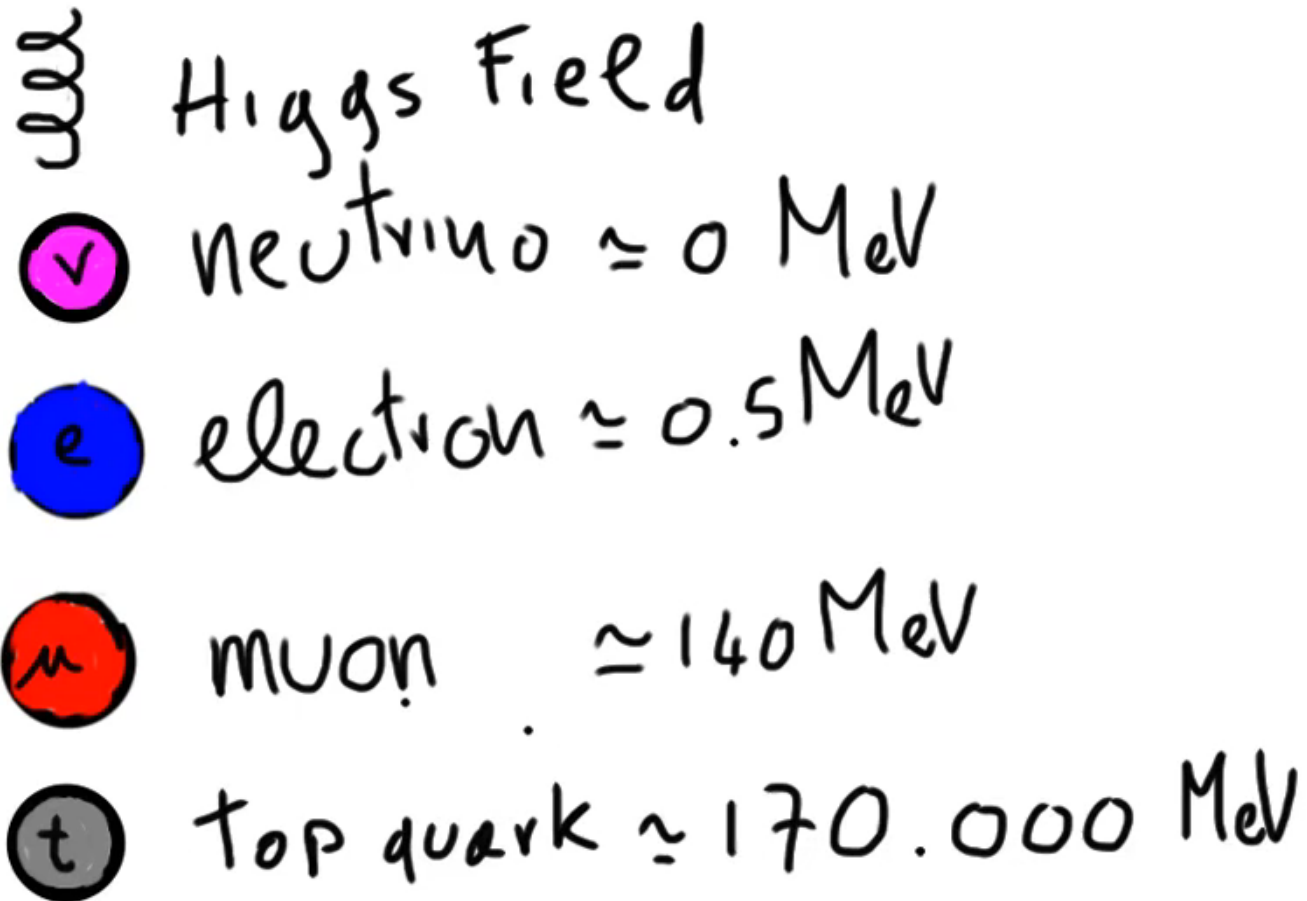 Higgs Field
ν neutrino ≃ 0 MeV
e electron ≃ 0.5 MeV
μ muon ≃ 140 MeV
t top quark ≃ 170.000 MeV